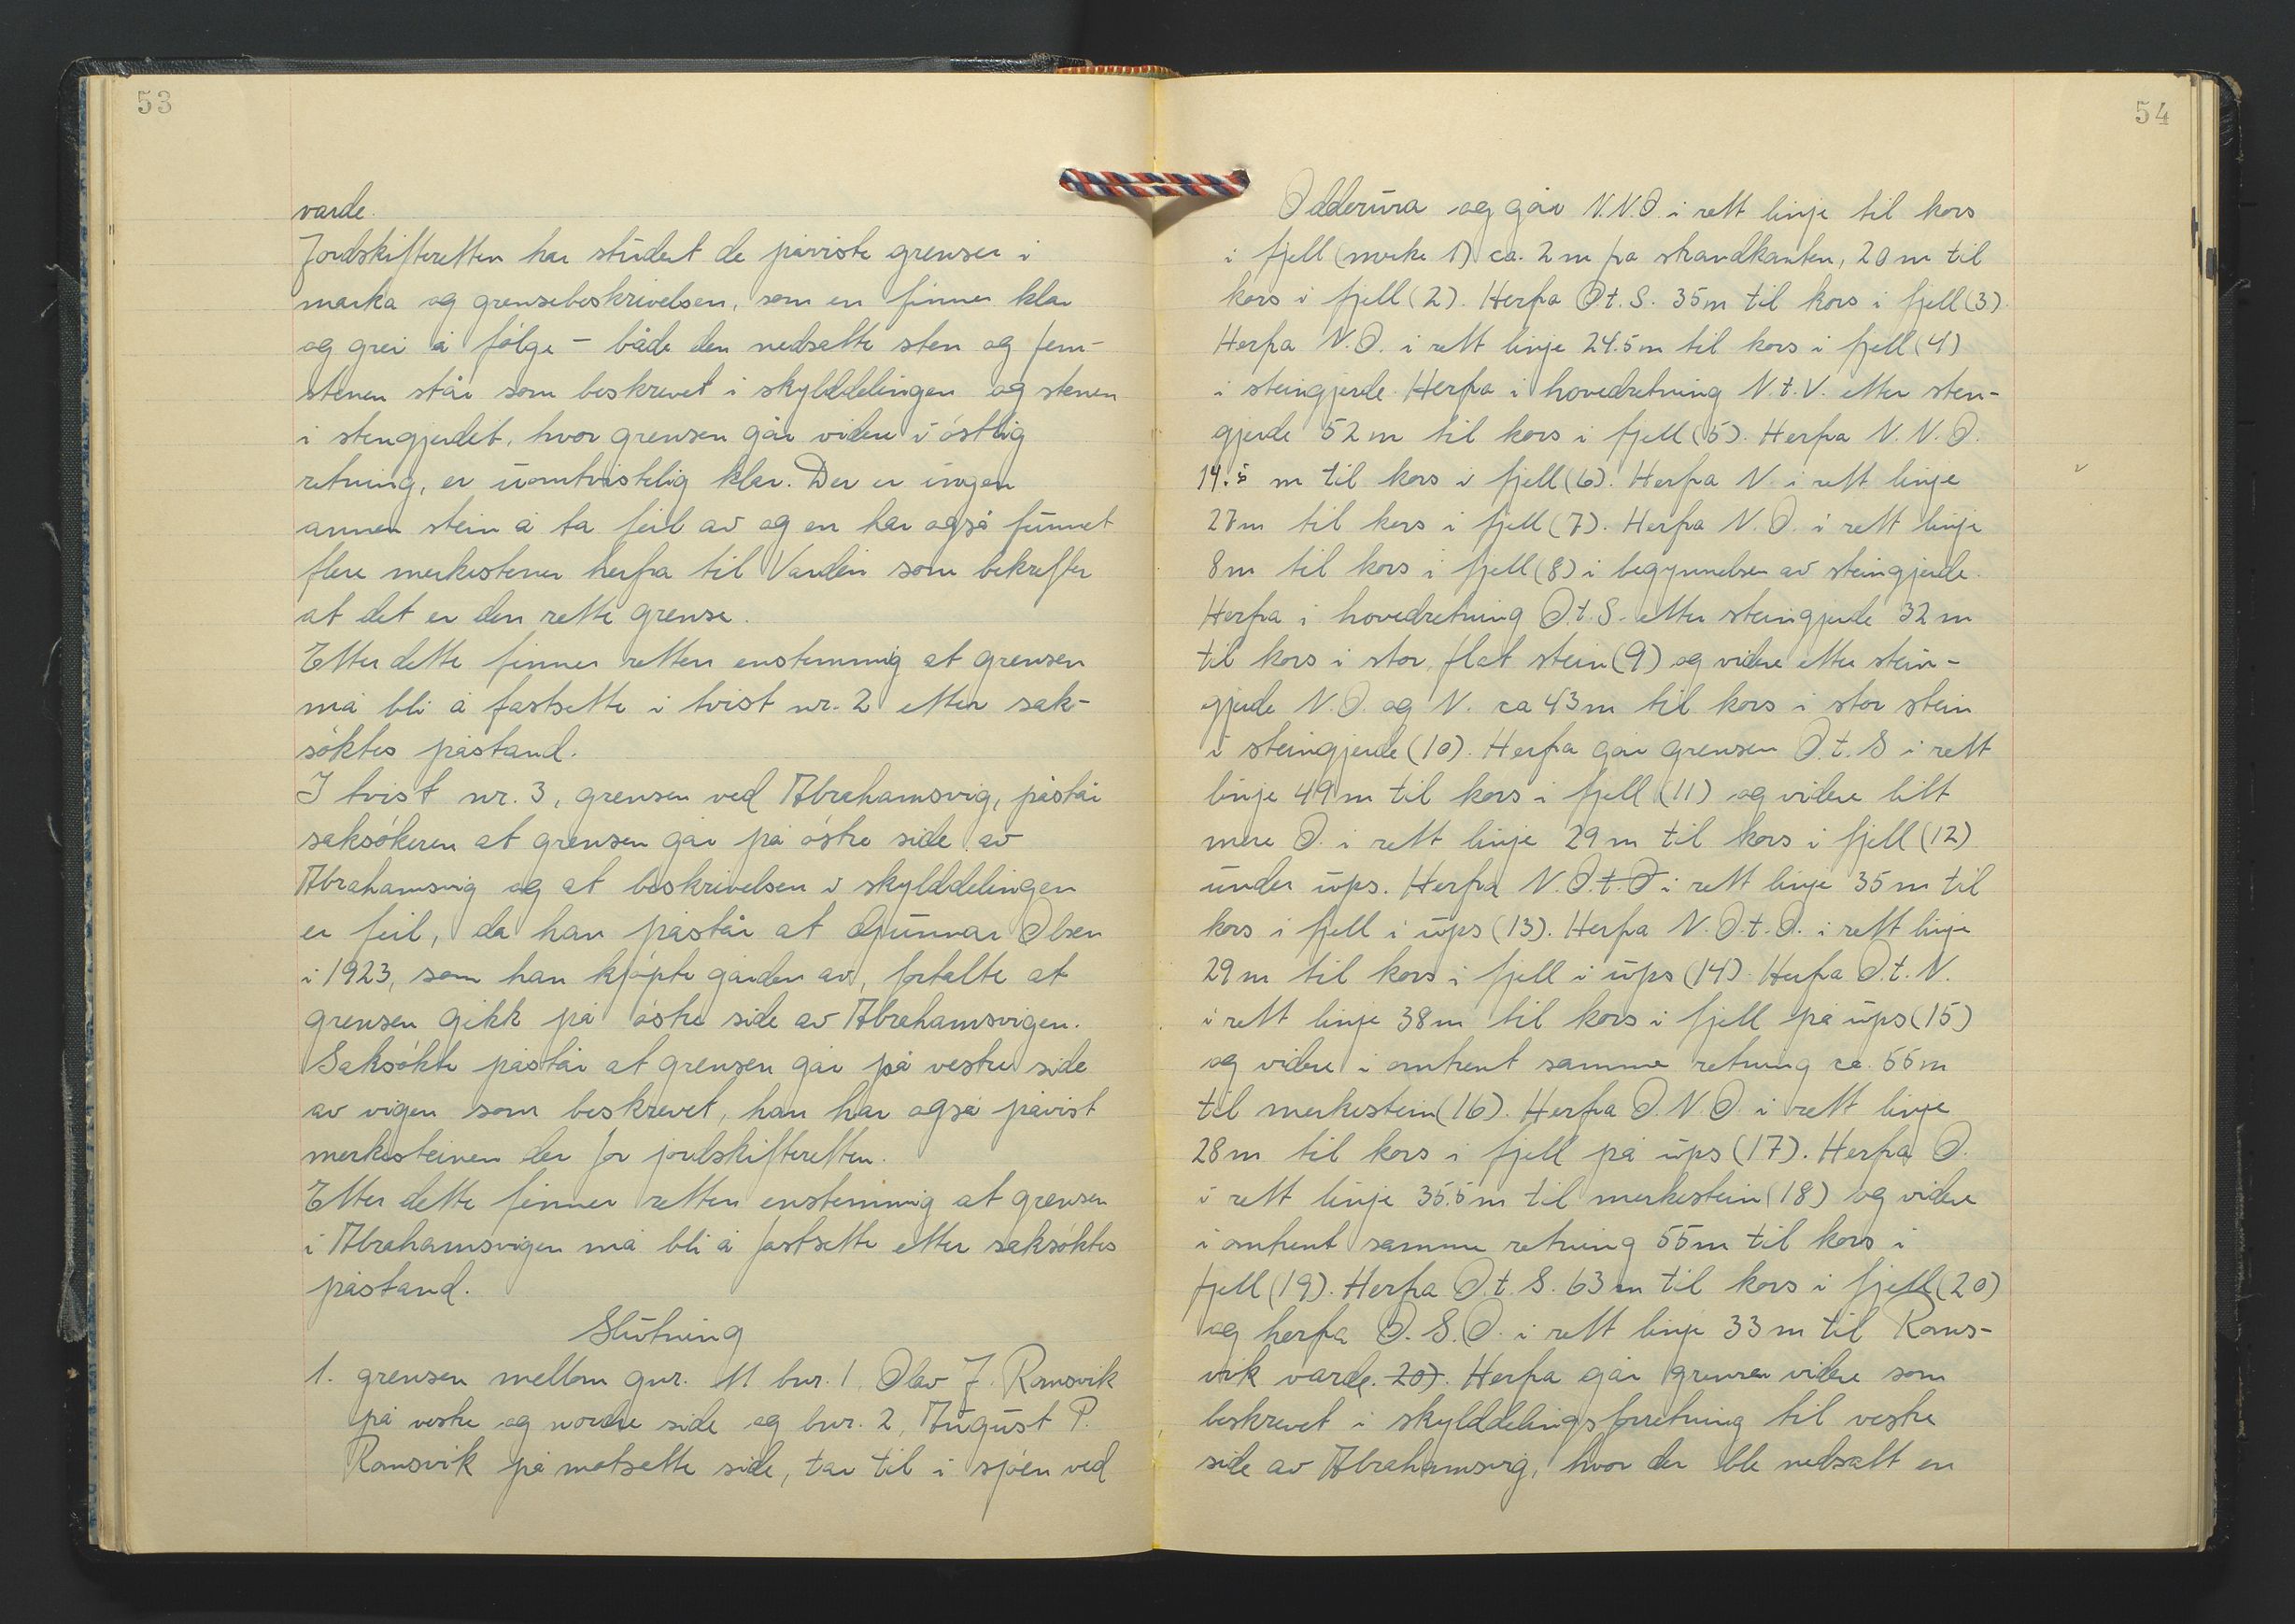 53
varde.
Jordskifteretten har studert de påviste grenser i
marka og grensebeskrivelsen, som en finner klar
og grei å følge - både den nedsatte sten og jem-
stenen står som beskrevet i skylddelingen og stenen
i stengjerdet, hvor grensen går videre i østlig
retning, er uomtvistelig klar. Der er ingen
annen stein å ta feil av og en har også funnet
flere merkestener herfra til Varden som bekrefter
at det er den rette grense.
Etter dette finner retten enstemmig at grensen
må bli å fastsette i tvist nr. 2 etter sak-
søktes påstand.
I tvist nr. 3, grensen ved Abrahamsvig, påstår
saksøkeren at grensen går på østre side av
Abrahamsvig og at beskrivelsen i skylddelingen
er feil, da han påstår at Gunnar Olsen
i 1923, som han kjøpte gården av, fortalte at
grensen gikk på østre side av Abrahamsvigen.
Saksøkte påstår at grensen går på vestre side
av vigen som beskrevet, han har også påvist
merkesteinen der for jordskifteretten.
Etter dette finner retten enstemmig at grensen
i Abrahamsvigen må bli å fastsette etter saksøktes
påstand.
Slutning
1. grensen mellom gnr. 11 bnr. 1, Olav J. Ramsvik
på vestre og nordre side og bnr. 2, August P.
Ramsvik på motsatte side, tar til i sjøen ved
54
Odderura og går N.N.Ø. i rett linje til kors
i fjell (merke 1) ca. 2 m fra strandkanten, 20 m til
kors i fjell (2). Herfra Ø.t.S. 35 m til kors i fjell (3).
Herfra N.Ø. i rett linje 24.5 m til kors i fjell (4)
i steingjerde. Herfra i hovedretning N.t.V. etter sten-
gjerde 52 m til kors i fjell (5). Herfra N.N.Ø.
14.5 m til kors i fjell (6). Herfra N. i rett linje
27 m til kors i fjell (7). Herfra N.Ø. i rett linje
8 m til kors i fjell (8) i begynnelsen av steingjerde.
Herfra i hovedretning Ø.t.S. etter steingjerde 32 m
til kors i stor, flat stein (9) og videre etter stein-
gjerde N.Ø. og N. ca 43 m til kors i stor stein
i steingjerde (10). Herfra går grensen Ø.t.S i rett
linje 49 m til kors i fjell (11) og videre litt
mere Ø. i rett linje 29 m til kors i fjell (12)
under ups. Herfra N.Ø.t.Ø i rett linje 35 m til
kors i fjell i ups (13). Herfra N.Ø.t.Ø. i rett linje
29 m til kors i fjell i ups (14). Herfra Ø.t.N.
i rett linje 38 m til kors i fjell på ups (15)
og videre i omtrent samme retning ca. 55 m
til merkestein (16). Herfra Ø.N.Ø. i rett linje
28 m til kors i fjell på ups (17). Herfra Ø.
i rett linje 35.5 m til merkestein (18) og videre
i omtrent samme retning 55 m til kors i
fjell (19). Herfra Ø.t.S. 63 m til kors i fjell (20)
og herfra Ø.S.Ø. i rett linje 33 m til Rams-
vik varde. 20). Herfra går grensen videre som
beskrevet i skylddelingsforretning til vestre
side av Abrahamsvig, hvor der ble nedsatt en